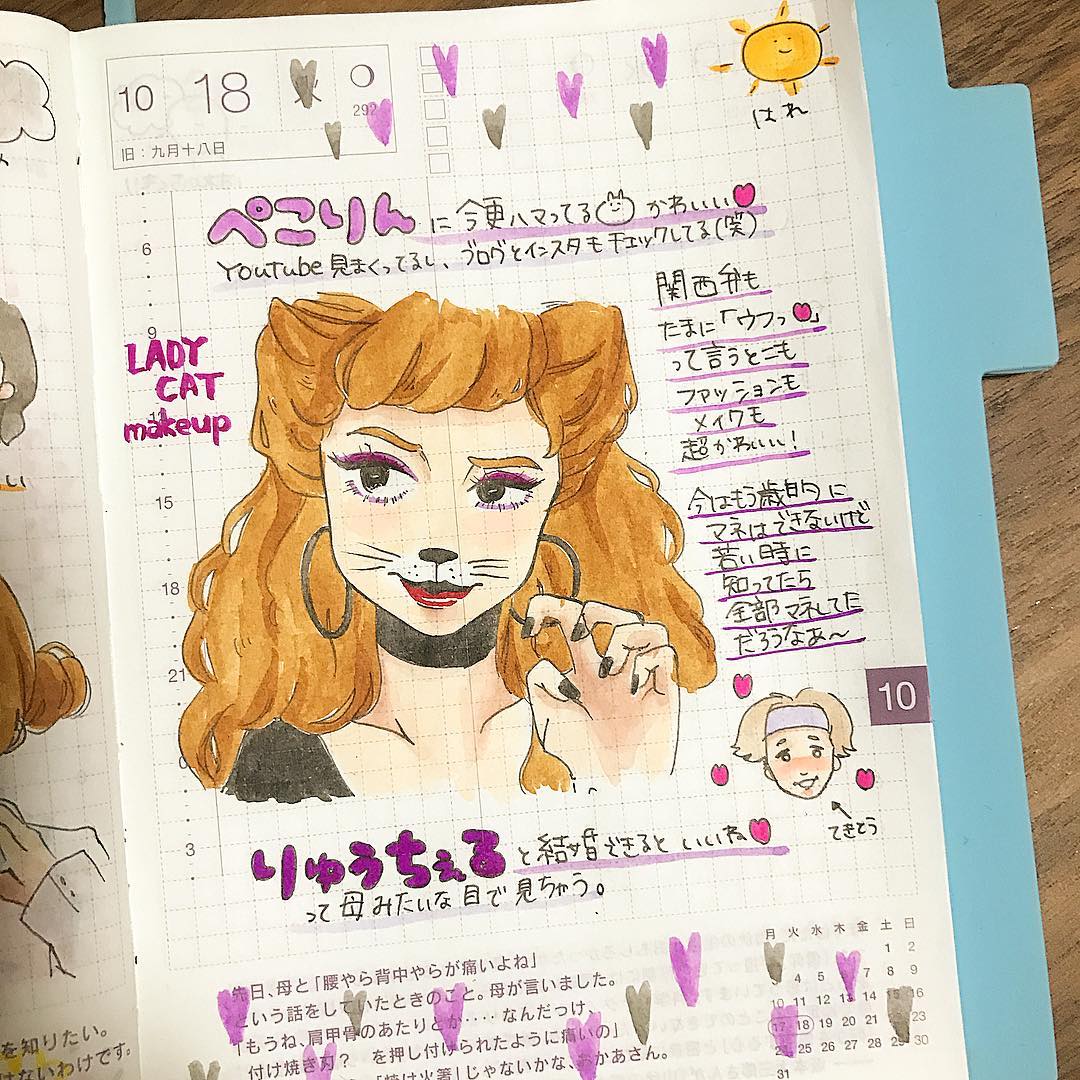 10 18 火
292
旧：九月十八日
はれ
ぺこりんに今更ハマってる かわいい
Youtube見まくってるし、ブログとインスタもチェックしてる(笑)
関西弁も
たまに「ウフっ」
って言うとこも
ファッションも
メイクも
超かわいい！
LADY
CAT
makeup
今はもう歳的に
マネはできないけど
若い時に
知ってたら
全部マネしてた
だろうなぁ〜
6
9
15
18
21
3
10
てきとう
りゅうちぇると結婚できるといいね
って母みたいな目で見ちゃう。
先日、母と「腰やら背中やらが痛いよね」
という話をしていたときのこと。母が言いました。
「もうね、肩甲骨のあたりとか‥‥なんだっけ、
付け焼き刃？　を押し付けられたように痛いの」
「焼け火箸」じゃないかな、おかあさん。
月 火 水 木 金 土 日
1 2
3 4 5 6 7 8 9
10 11 12 13 14 15 16
17 18 19 20 21 22 23
24 25 26 27 28 29 30
31
を知りたい。
けないわけです。